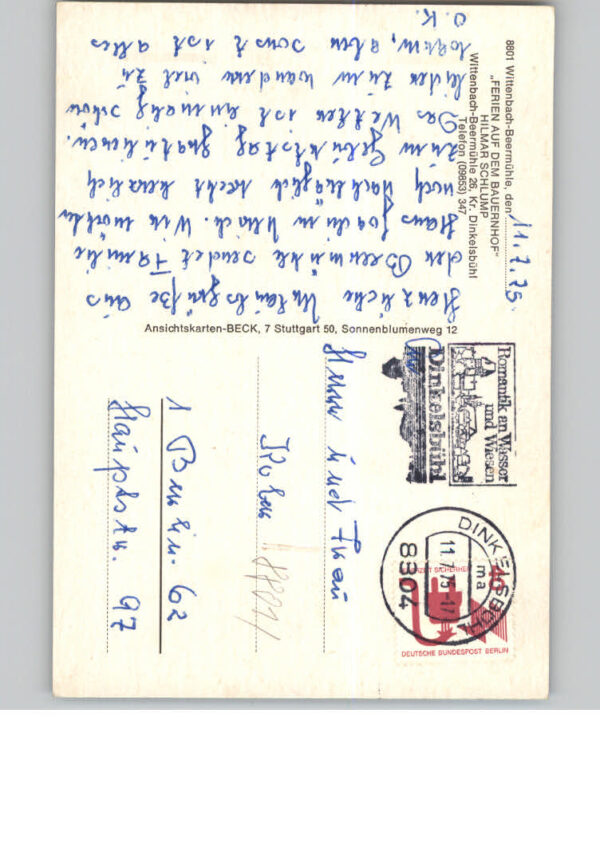 8801 Wittenbach-Beermühle, den 11.7.75
„FERIEN AUF DEM BAUERNHOF“
HILMAR SCHLUMP
Wittenbach-Beermühle 26, Kr. Dinkelsbühl
Telefon (09853) 347
Herzliche Urlaubsgrüße aus
der Beermühle sendet Familie
Hans Joachim Ulrich. Wir möchten
noch nachträglich recht herzlich
zum Geburtstag gratulieren.
Das Wetter ist einmalig schön
leider zum wandern viel zu
warm, aber sonst ist alles
O.K.
Ansichtskarten-BECK, 7 Stuttgart 50, Sonnenblumenweg 12
Romantik an Wasser
und Wiesen
Dinkelsbühl
DINKELSBÜHL
ma
11.7.75-17
8804
40
DEUTSCHE BUNDESPOST BERLIN
Herrn und Frau
1 Berlin 62
Hauptstr. 97